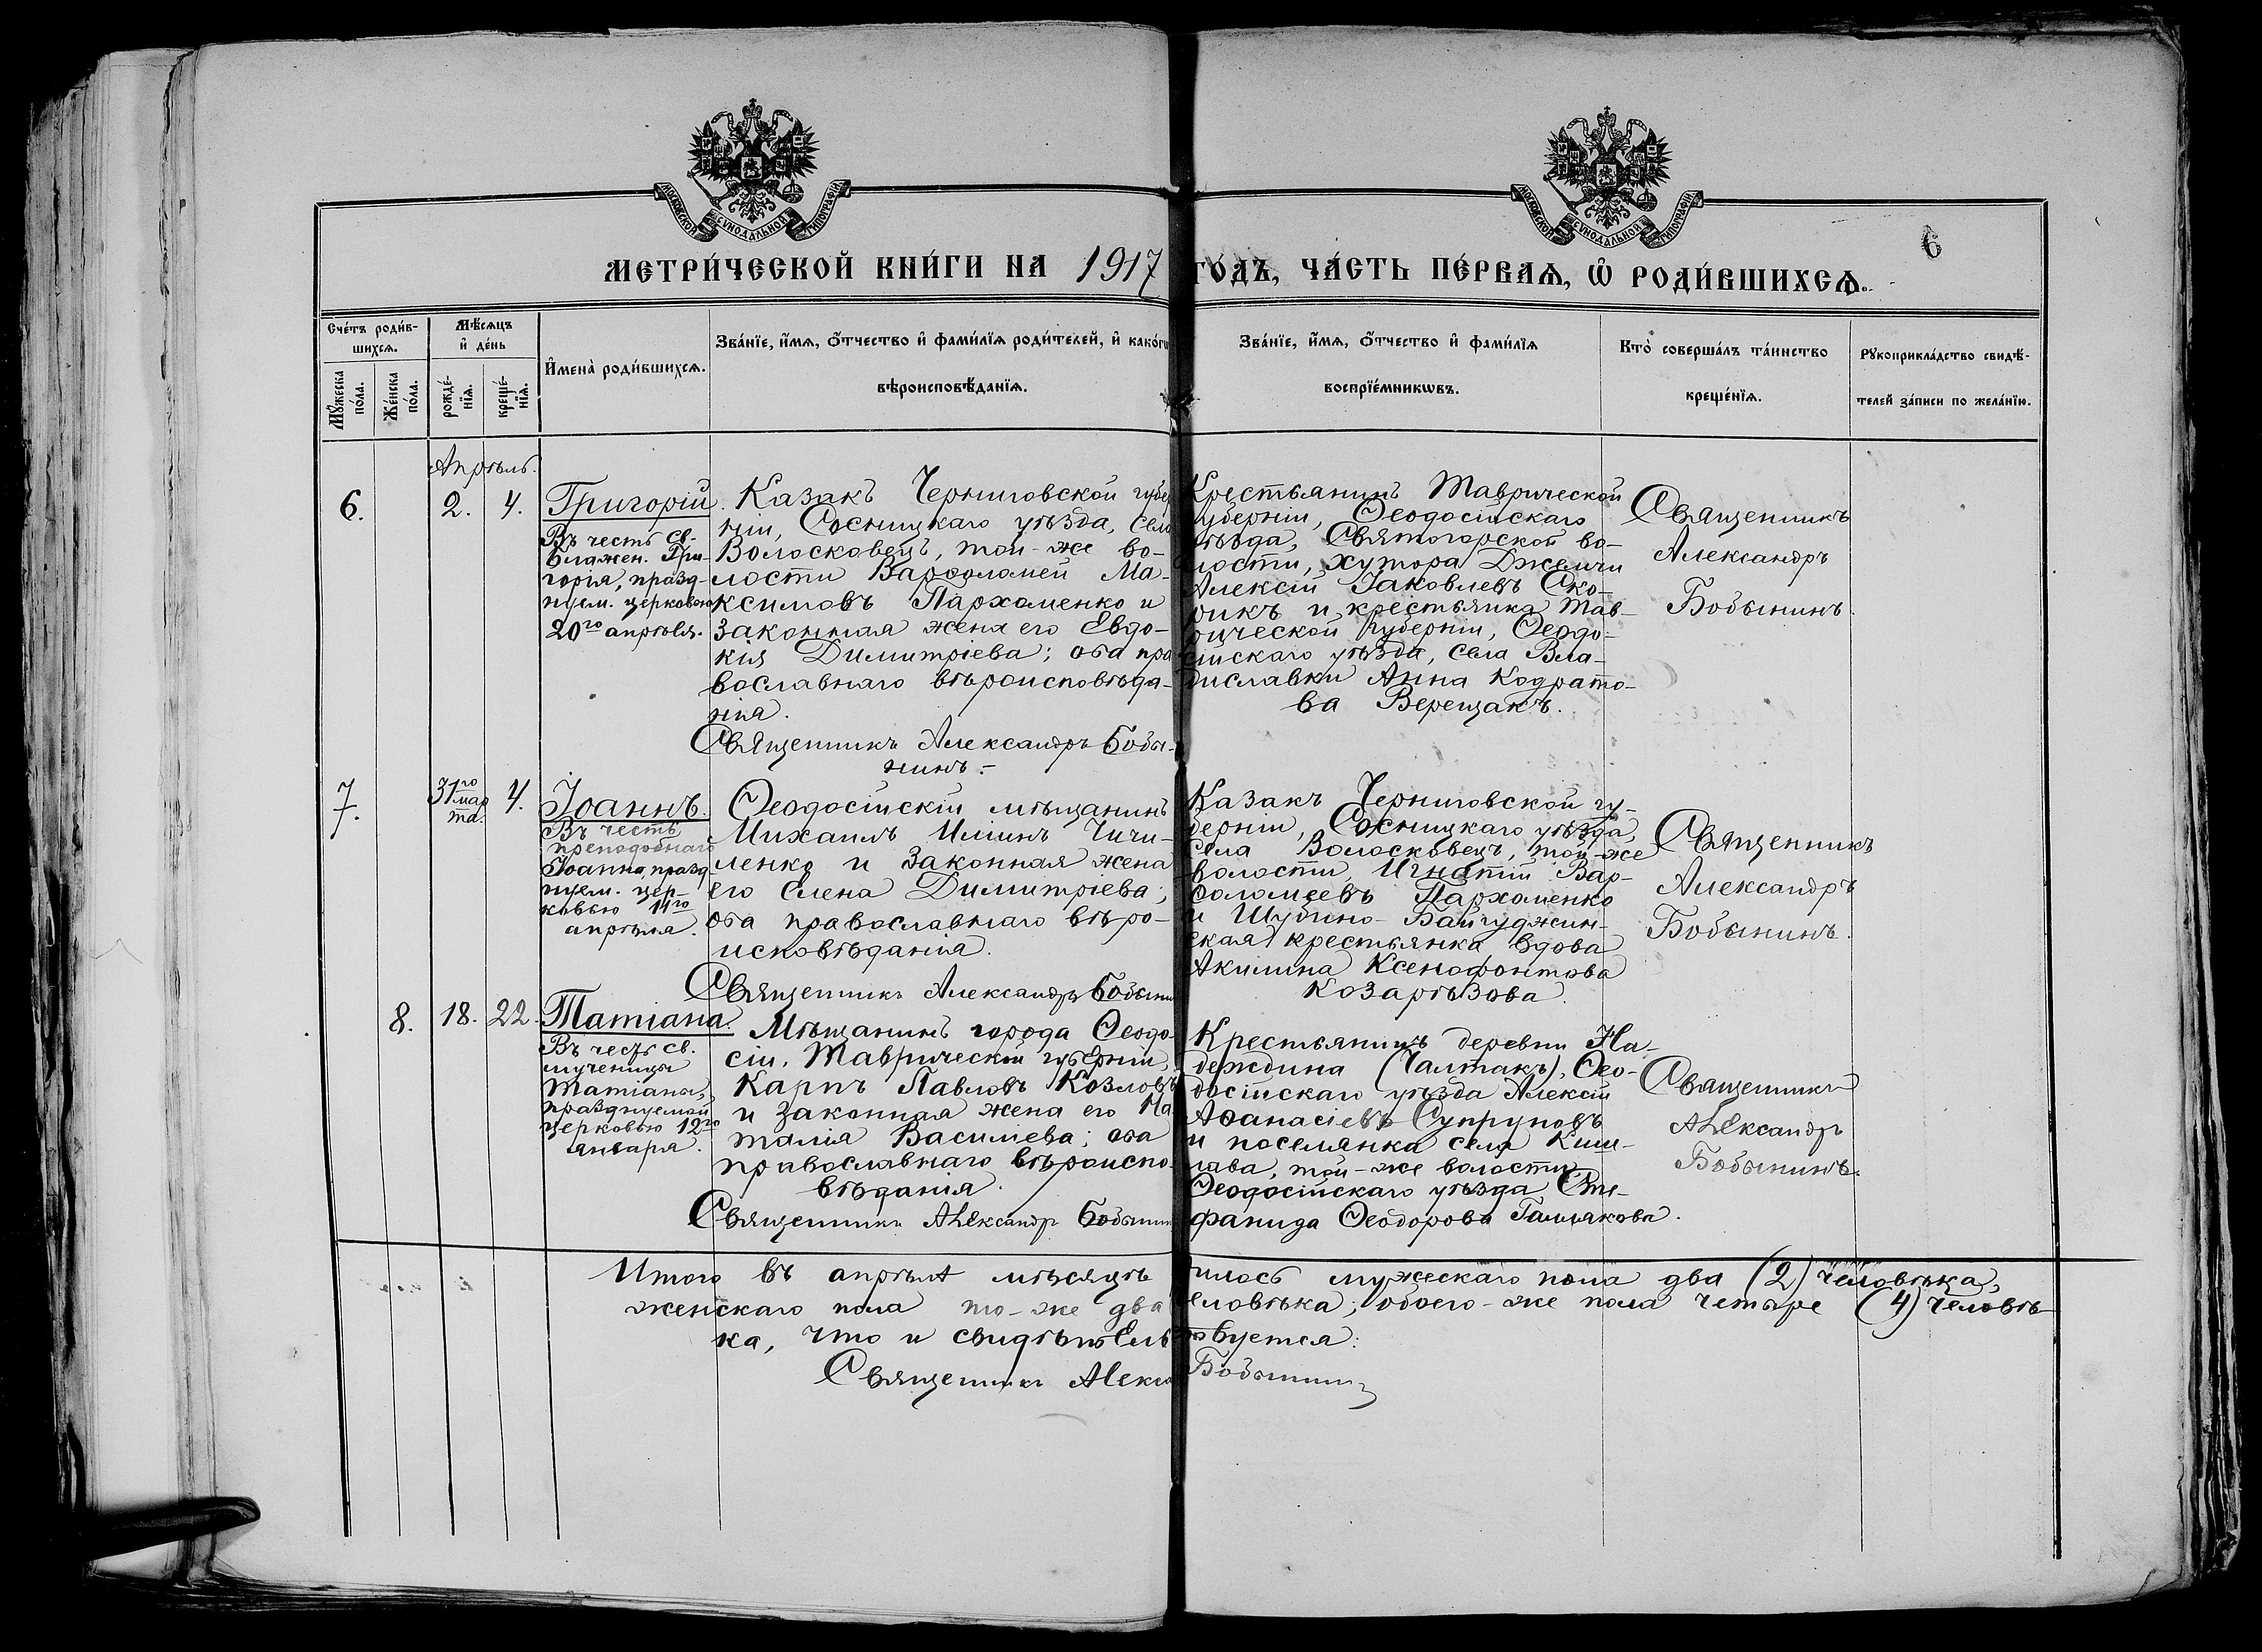 МОСКОВСКОЙ СѴНОДАЛЬНОЙ ТИПОГРАФІИ
МОСКОВСКОЙ СѴНОДАЛЬНОЙ ТИПОГРАФІИ
6
МЕТРИ́ЧЕСКОЙ КНИ́ГИ НА 1917 ГО́ДЪ, ЧА́СТЬ ПЕ́РВАѦ, Ѡ РОДИ́ВШИХСѦ.
Сче́тъ роди́в-
шихсѧ.
Мꙋ́жеска по́ла.
Же́нска по́ла.
Мѣ́сѧцъ
и де́нь
рожде́-
нїѧ.
креще́-
нїѧ.
Имена̀ роди́вшихсѧ.
Зва́нїе, и́мѧ, о́тчество и фами́лїѧ роди́телей, и како́гѡ
вѣроисповѣ́данїѧ.
Зва́нїе, и́мѧ, о́тчество и фами́лїѧ
воспрїе́мникѡвъ.
Кто̀ соверша́лъ та́инство
креще́нїѧ.
Рꙋкоприкла́дство свидѣ́-
телей за́писи по жела́нїю.
Апрѣль.
6.
2.
4.
Григорій.
Въ честь св.
блажен. Гри-
горія, празд-
нуем. церковью
20го апрѣля.
Казакъ Черниговской губер
ніи, Сосницкаго уѣзда, села
Волосковецъ, той-же во-
лости Варѳоломей Ма-
ксимовъ Пархоменко и
законная жена его Евдо-
кія Димитріева; оба пра
вославнаго вѣроисповѣда-
нія.
Священникъ Александръ Бобы-
нинъ.-
Крестьянинъ Таврической
губерніи, Ѳеодосійскаго
уѣзда, Святогорской во-
лости, хутора Джелчи
Алексій Іаковлевъ Ско-
рикъ и крестьянка Тав-
рической губерніи, Ѳеодо-
сійскаго уѣзда, села Вла-
диславки Анна Кодрато-
ва Верещакъ.
Священникъ
Александръ
Бобынинъ.
7.
31го
мар
та.
4.
Іоаннъ.
Въ честь
преподобнаго
Іоанна, празд-
нуем. цер-
ковью 11го
апрѣля.
Ѳеодосійскій мѣщанинъ
Михаилъ Илiинъ Чичи-
ленко и законная жена
его Елена Димитріева;
оба православнаго вѣро-
исповѣданія.
Священникъ Александръ Бобыни
Казакъ Черниговской гу-
берніи, Сосницкаго уѣзда,
села Волосковецъ, той-же
волости, Игнатій Вар-
ѳоломеевъ Пархоменко
и Шубино-Байгуджин-
ская крестьянка вдова
Акилина Ксенофонтова
Козарѣзова.
Священникъ
Александръ
Бобынинъ.
8.
18.
22.
Татіана.
Въ честь св.
мученицы
Татіаны,
празднуемой
церковью 12го
января.
Мѣщанинъ города Ѳеодо-
сіи, Таврической губерніи,
Карпъ Павловъ Козловъ
и законная жена его На
талія Василіева; оба
православнаго вѣроиспо-
вѣданія.
Священникъ Александръ Бобынин
Крестьянинъ деревни На-
деждина (Чалтакъ), Ѳео-
досійскаго уѣзда Алексій
Аѳанасіевъ Супруновъ
и поселянка села Киш-
лава, той-же волости,
Ѳеодосійскаго уѣзда Сте-
фанида Ѳеодорова
Священникъ
Александръ
Бобынинъ.
Итого въ апрѣлѣ мѣсяцѣ илось мужескаго пола два (2) человѣка,
женскаго пола то-же два еловѣка; обоего-же пола четыре (4) человѣ-
ка, что и свидѣтельствуется:
Священникъ Алекса Бобынинъ